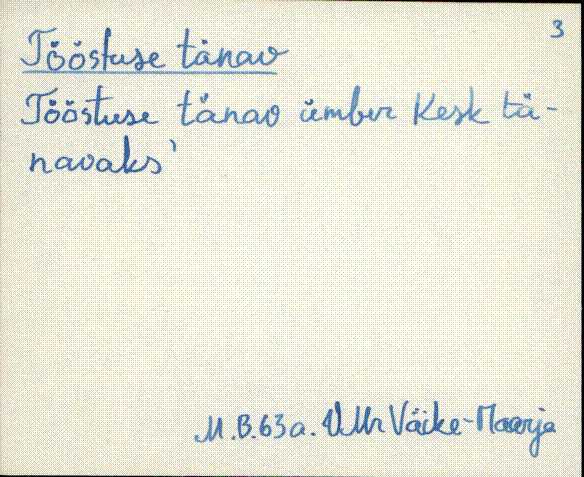 3
Tööstuse tänav
Tööstuse tänav ümber Kesk tä-
navaks'
M.B.63a. VMr Väike-Maarja